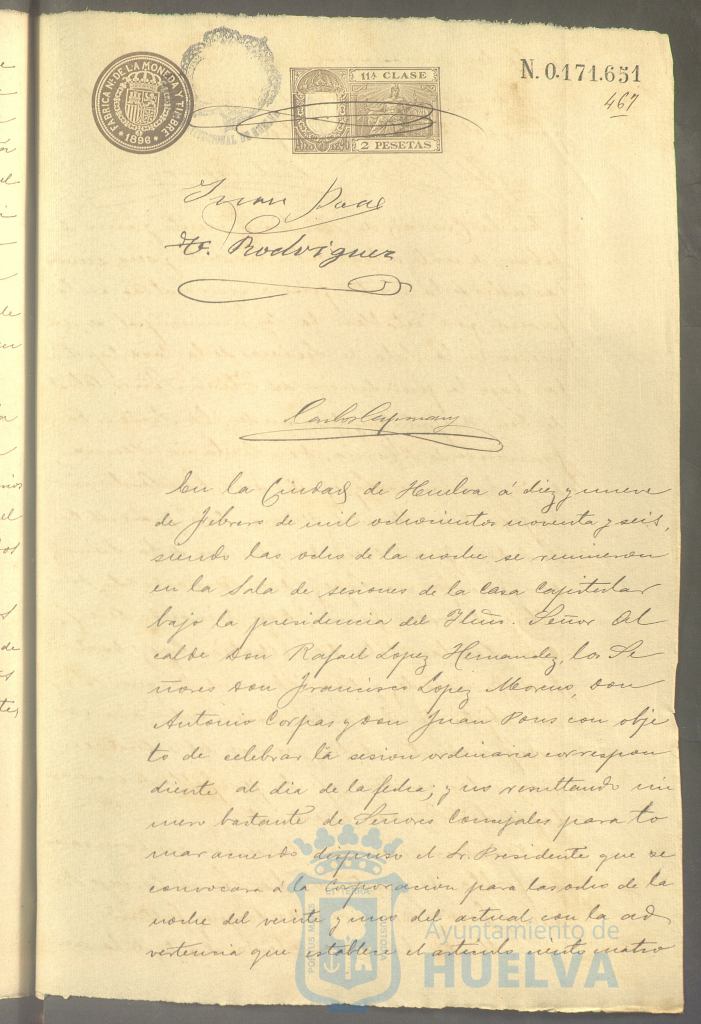 FÁBRICA Nal. DE LA MONEDA Y TIMBRE
* 1896 *
11ª CLASE
2 PESETAS
N. 0.171.651
467
Juan Pons
Rodriguez
Carlos Capmany
En la Ciudad de Huelva á diez y nueve
de Febrero de mil ochocientos noventa y seis,
siendo las ocho de la noche se reunieron
en la Sala de sesiones de la casa capitular
bajo la presidencia del Iltmo. Señor Al
calde Don Rafael Lopez Hernandez, los Se
ñores Don Francisco Lopez Moreno, Don
Antonio Corpas y Don Juan Pons con obje
to de celebrar la sesion ordinaria correspon
diente al dia de la fecha; y no resultando nú
mero bastante de Señores Concejales para to
mar acuerdo dispuso el Sr. Presidente que se
convocara á la Corporacion para las ocho de la
noche del veinte y uno del actual con la ad
vertencia que establece el articulo ciento cuatro
PORTUS MARIS
ET TERRÆ
CUSTODIA
Ayuntamiento de
HUELVA